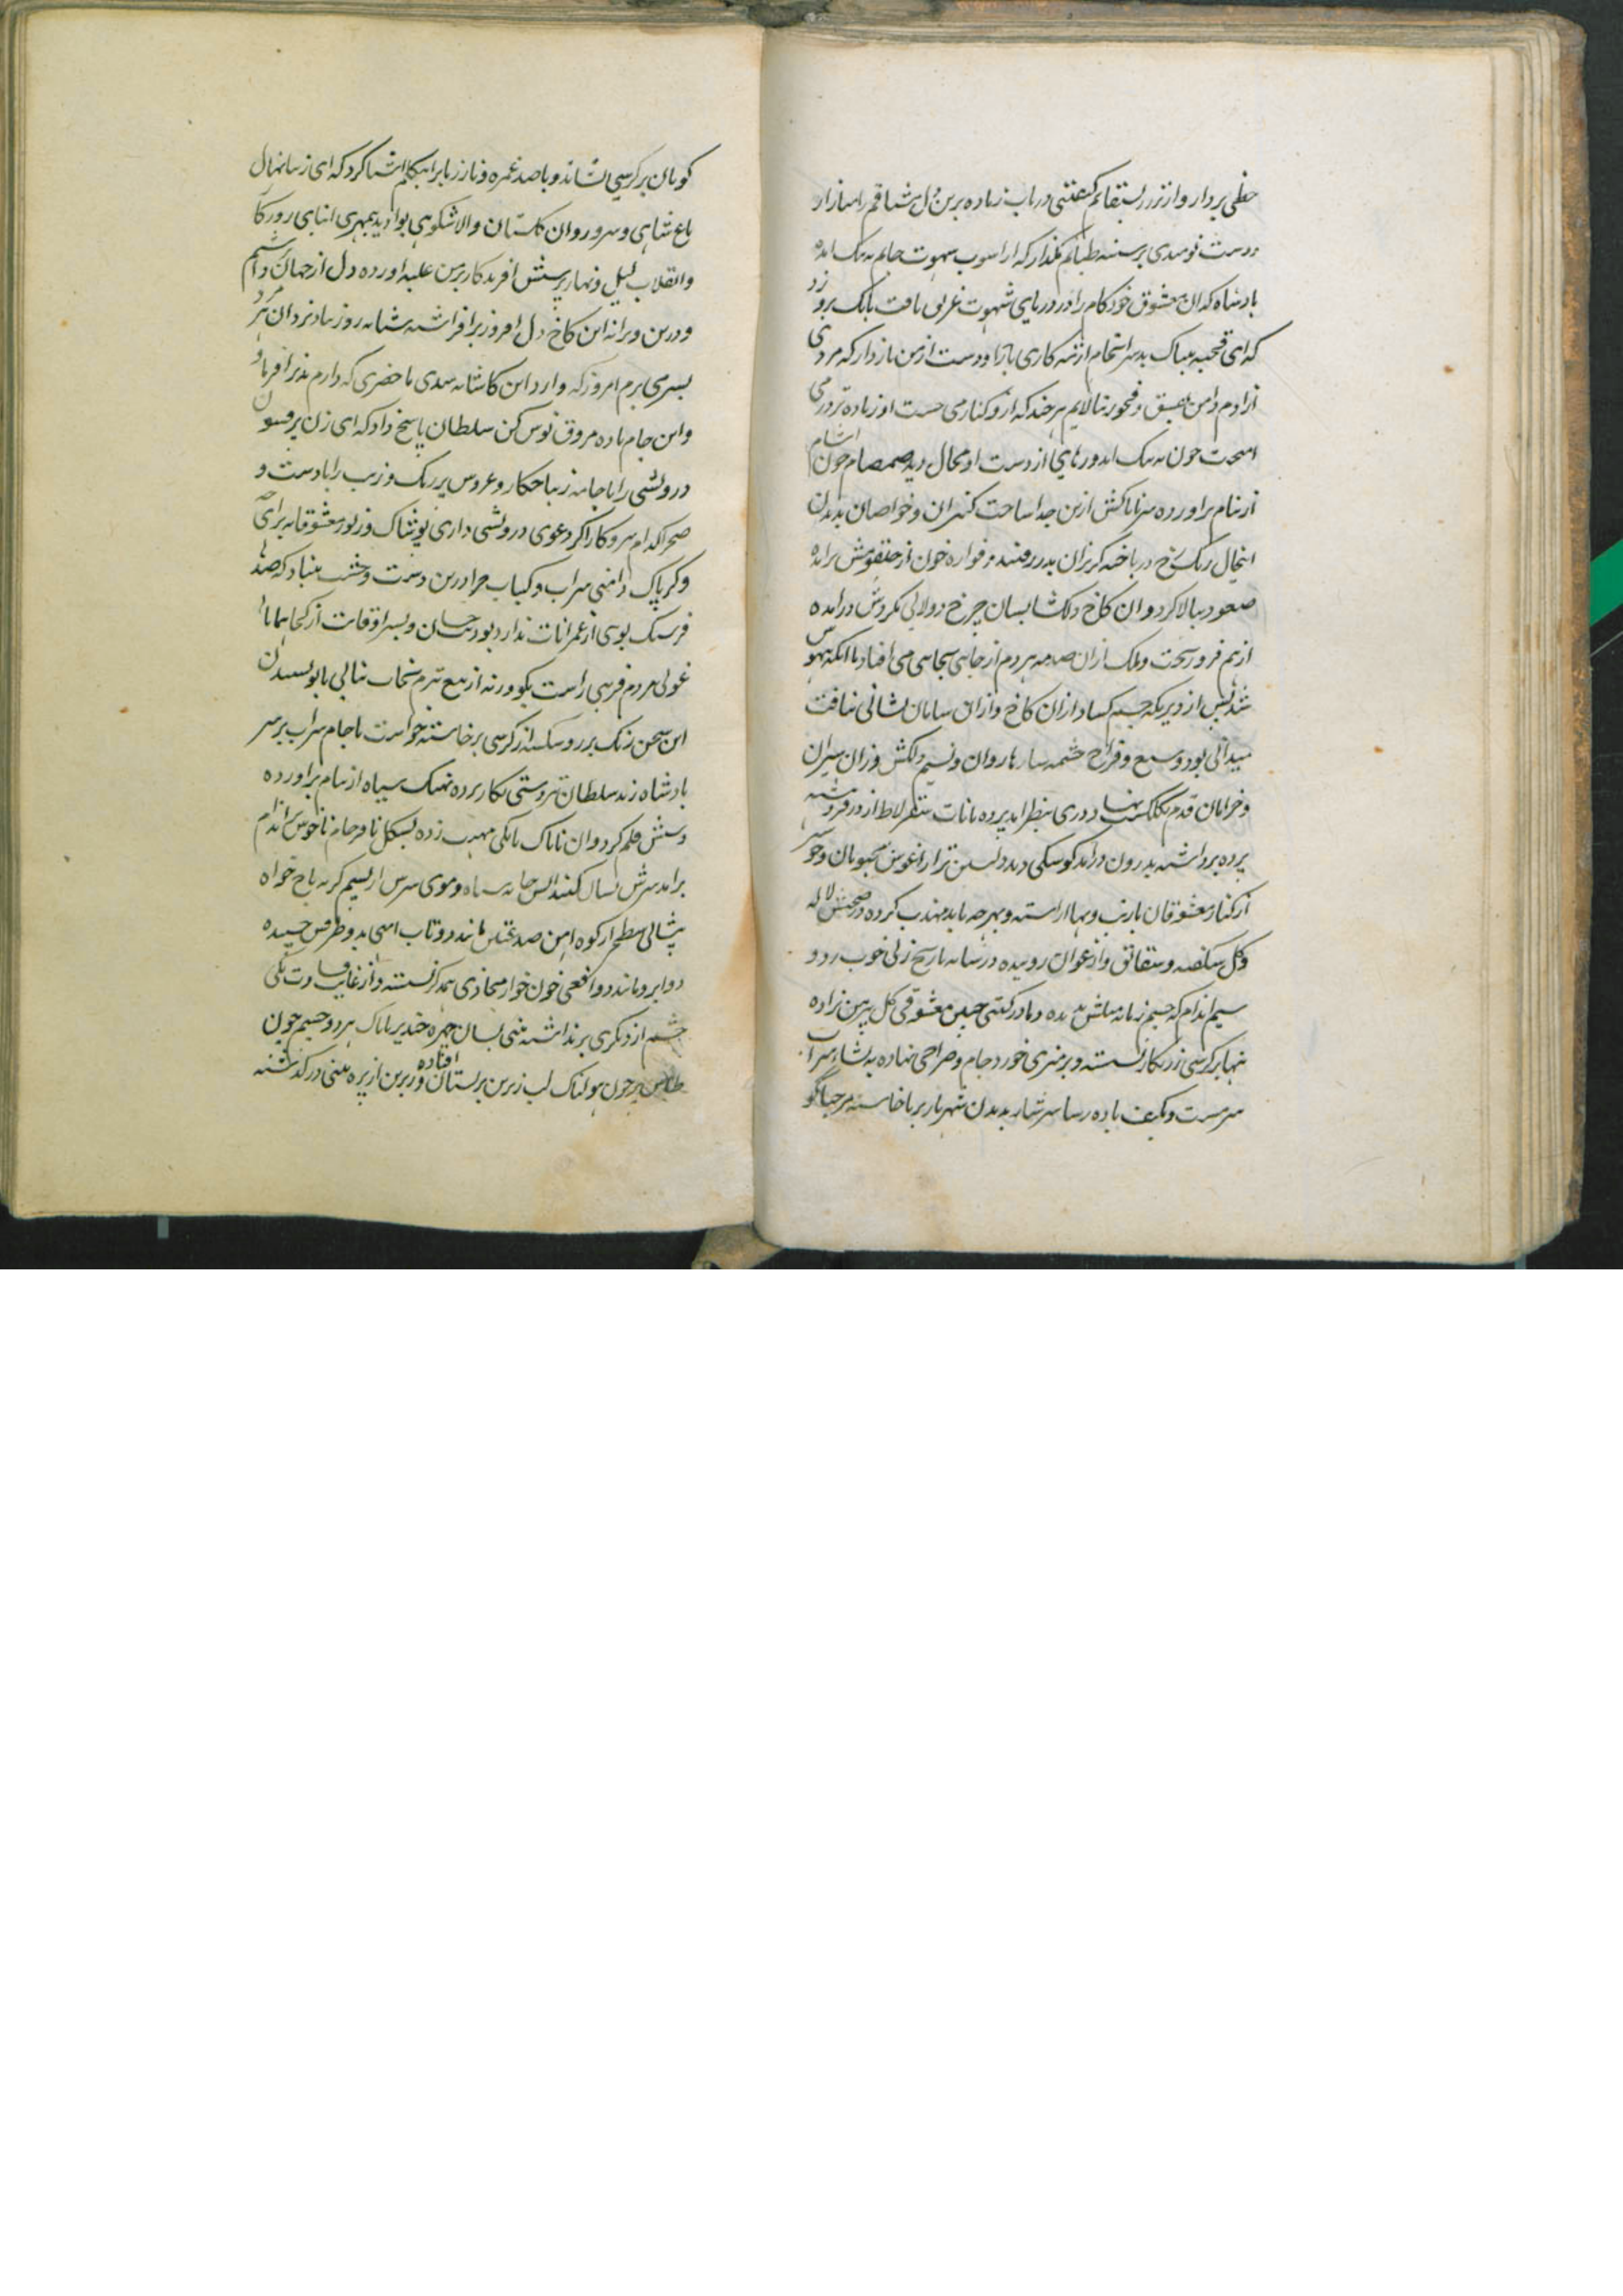 حظی بردار و از نزد
دست نومیدی بر سینه طپانم مگذار که از
بادشاه که آن معشوق خودکام را در دریای شهوت غریق یافت بانگ برو زد
که ای قحبه بیباک بد سرانجام ازتبه کاری باز آ و دست از من باز دار که مردی
آزادم دامن بفسق و فجور نیالایم هر چند که ازو کنار می جست او زیاده تر در می
چون به تنگ آمد و رهایی از دست او محال دید صمصام خون آشام
از نیام برآورده سر ناپاکش از تن جدا ساخت کنیزان و خواصان بدیدن
اینحال رنگ رخ در باخته گریزان بدر رفتند و فواره خون از حلقومش برآمده
صعود ببالا کرد و آن کاخ دلکشا بسان چرخ دولابی بگردش درآمده
از هم فرو ریخت و ملک ازان صدمه هر دم از جایی بجایی می افتاد تا آنکه بیهوش
شد پس از دیری که چشم کشاد ازان کاخ و ازان سامان نشانی نیافت
میدانی بود وسیع و فراخ چشمه سارها روان و نسیم دلکش وزان سیران
و خرامان قدم دری بنظر آمد پرده بانات سقرلاط از در فروهشته
پرده برداشته بدرون درآمد کوشکی دید دلنشین تر از آغوش محبوبان و خوشتر
از کنار معشوقان بازیب و بها آراسته و بهر چه باید مهذب کرده در صحنش لاله
و گل شگفته و شقائق و ارغوان رویده درمیانه تاریخ زنی خوب رو و
سیم اندام که چشم زمانه مثلش ندیده و مادر گیتی چنین معشوقی گل پیرهن نزاده
تنها بر کرسی زرنگار نشسته و بر میزی خورد جام و صراحی نهاده به نشاء شراب
سرمست و بکیف باده رسا سرشار بدیدن شهریار بر پا خاسته مرحبا گو
گویان بر کرسی نشاند و با صد غمزه و ناز زبان را بتکلم آشنا کرد که ای زیبا نهال
باغ شاهی و سرو روان گلستان والاشکوهی بوادید بیمهری ابنای روزگار
و انقلاب لیل و نهار پرستش آفریدگار بر من غلبه آورده دل از جهان برداشتم
و درین ویرانه این کاخ دل افروز برافراشته شبانه روز بیاد یزدان
بسر می برم امروز که وارد این کاشانه شدی ما حضری که دارم پذیرا فرما و
و این جام باده مروق نوش کن سلطان پاسخ داد که ای زن پرفسون
درویشی را با جامه زیبا چکار و عروس پر رنگ و زیب را با دشت و
صحرا کدام سروکار اگر دعوی درویشی داری پوشاک و زیور معشوقانه برای چه
و گر پاک دامنی شراب و کباب چرا درین دشت وحشت بنیاد که صدها
فرسنگ بوی از عمرانات ندارد بود و بسر اوقات از کجا همانا
غولی مردم فریبی راست بگو ورنه از تیغ تیزم نجات نیابی بانو بشنیدن
این سخن رنگ بر رو شکسته از کرسی برخاسته خواست تا جام شراب بر سر
بادشاه زند سلطان تردستی بکار برده نهنگ سیاه از نیام برآورده
دستش قلم کرد و آن ناپاک بانگی مهیب زده بشکل نافرجام ناخوش اندام
برآمد سرش بسان گنبد سیاه و موی سرش
پیشانی مسطح از کوه
دو ابرو مانند دو افعی خون خوار محاذی همدگر نشسته و از غایت یکی
چشم از دیگری بر نداشته بینی بسان چهره خنزیر ناپاک هر دو چشم چون
طاس پر خون هولناک لب زیرین بر پستان افتاده و زبرین از پره بینی در گذشته